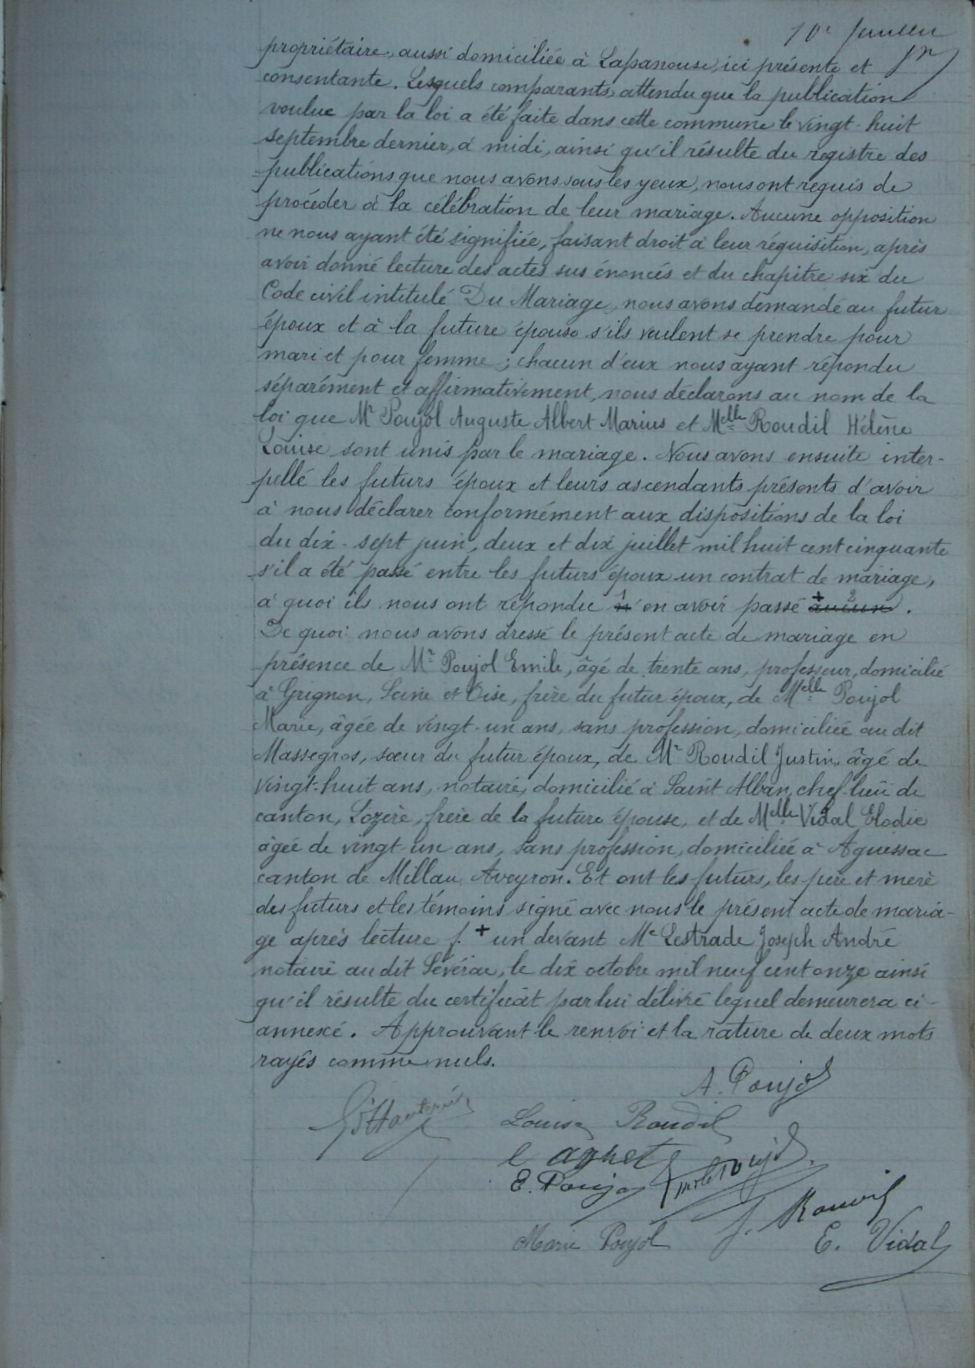 propriétaire, aussi domiciliée à Lapanouse, ici présente et
consentante. Lesquels comparants, attendu que la publication
voulue par la loi a été faite dans cette commune le vingt-huit
septembre dernier, à midi, ainsi qu'il résulte du registre des
publications que nous avons sous les yeux, nous ont requis de
procéder à la célébration de leur mariage. Aucune opposition
ne nous ayant été signifiée, faisant droit à leur réquisition, après
avoir donné lecture des actes sus énoncés et du chapitre six du
Code civil intitulé Du Mariage, nous avons demandé au futur
époux et à la future épouse s'ils veulent se prendre pour
mari et pour femme ; chacun d'eux nous ayant répondu
séparément et affirmativement, nous déclarons au nom de la
loi que Mr Poujol Auguste Albert Marius et Melle Roudil Hélène
Louise sont unis par le mariage. Nous avons ensuite inter-
pellé les futurs époux et leurs ascendants présents d'avoir
à nous déclarer conformément aux dispositions de la loi
du dix-sept juin, deux et dix juillet mil huit cent cinquante
s'il a été passé entre les futurs époux un contrat de mariage,
à quoi ils nous ont répondu n' en avoir passé + aucun.
De quoi nous avons dressé le présent acte de mariage en
présence de Mr Poujol Emile, âgé de trente ans, professeur, domicilié
à Grignon, Seine et Oise, frère du futur époux, de Melle Poujol
Marie, âgée de vingt-un ans, sans profession, domiciliée au dit
Massegros, sœur du futur époux, de Mr Roudil Justin, âgé de
vingt-huit ans, notaire, domicilié à Saint Alban, chef-lieu de
canton, Lozère, frère de la future épouse, et de Melle Vidal Elodie
âgée de vingt un ans, sans profession, domiciliée à Aguessac
canton de Millau, Aveyron. Et ont les futurs, les père et mère
des futurs et les témoins signé avec nous le présent acte de maria-
ge après lecture f. + un devant Me Lestrade Joseph André
notaire au dit Sévérac, le dix octobre mil neuf cent onze ainsi
qu'il résulte du certificat par lui délivré lequel demeurera ci-
annexé. Approuvant le renvoi et la rature de deux mots
rayés comme nuls.
A. Poujol
Louise Roudil
E. Poujol
Marie Poujol
E. Vidal